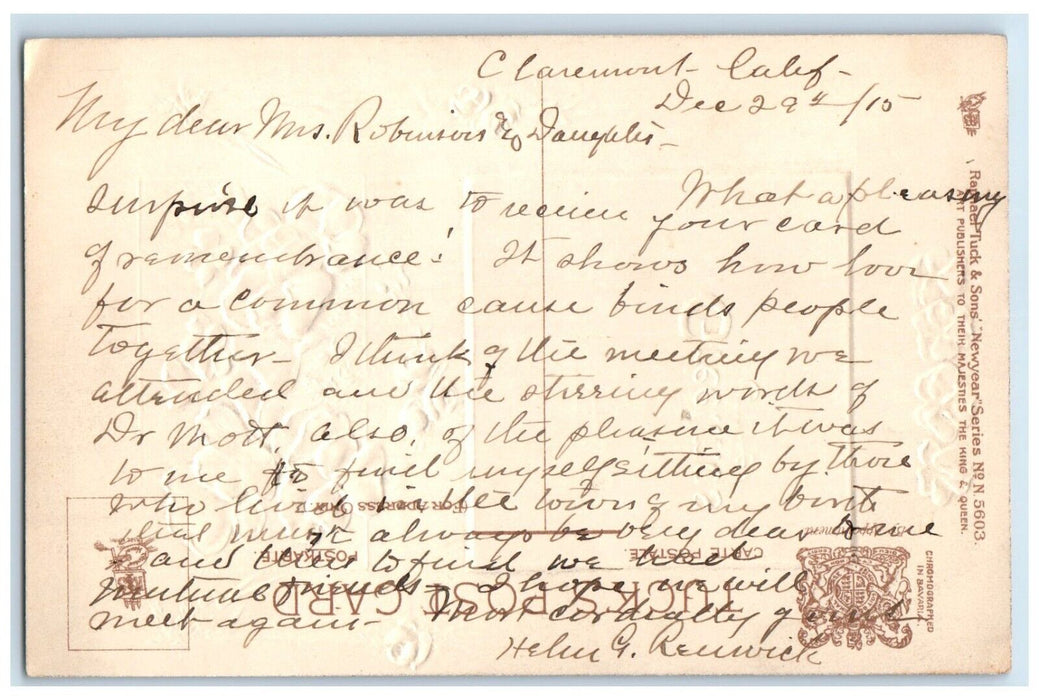 Claremont - Calif -
Dec 29th /15
My dear Mrs. Robinson & Daughter -
What a pleasing
surprise it was to receive your card
of remembrance! It shows how love
for a common cause binds people
together - I think of the meeting we
attended and the stirring words of
Dr Mott, also, of the pleasure it was
to me to find myself sitting by those
who lived in the town of my birth
that must always be very dear to me
and then to find we had
mutual friends - I hope we will
meet again - Most cordially yours
Helen G. Renwick
Raphael Tuck & Sons' "Newyear" Series No N 5603.
ART PUBLISHERS TO THEIR MAJESTIES THE KING & QUEEN.
TUCK'S POST CARD
CARTE POSTALE.
POSTKARTE.
FOR ADDRESS ONLY.
CHROMOGRAPHED
IN BAVARIA